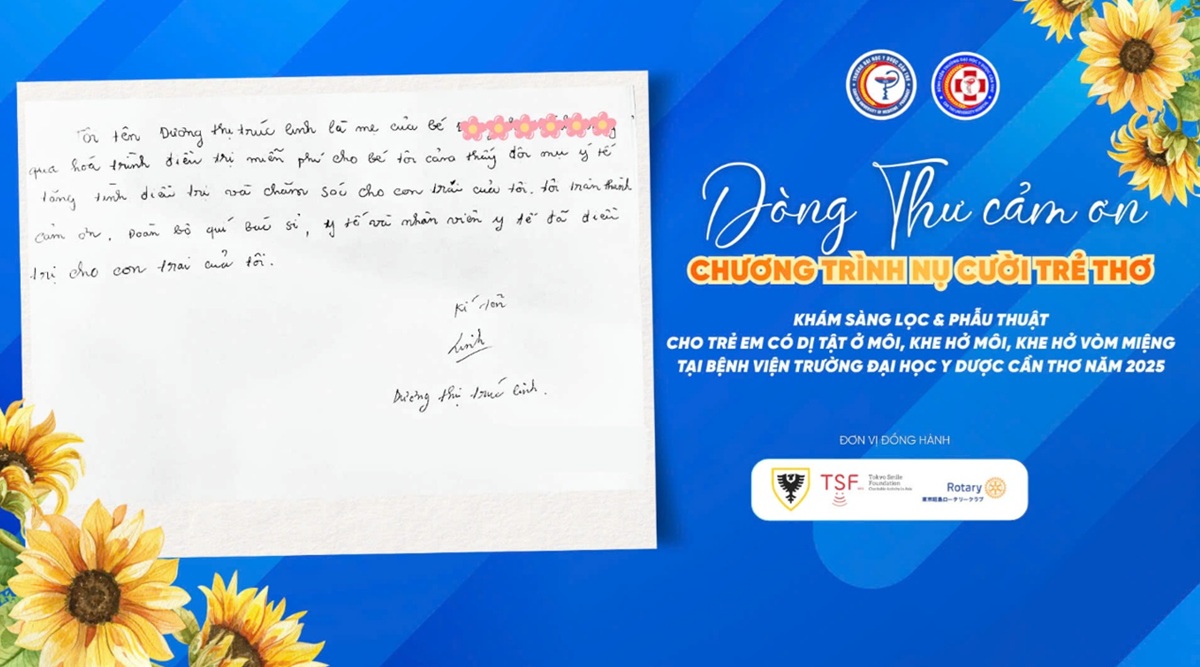 Tôi tên Dương thị trúc linh là mẹ của bé
qua hoá trình điều trị miễn phí cho bé tôi cảm thấy đội mụ y tế
tăng tình điều trị và chăm soc cho con trai của tôi. tôi trân thành
cảm ơn. Đoàn bộ quí bác si, y tế và nhân viên y tế đã điều
trị cho con trai của tôi.
kí tên
Linh
Dương thị trúc linh.
Dòng Thư cảm ơn
CHƯƠNG TRÌNH NỤ CƯỜI TRẺ THƠ
KHÁM SÀNG LỌC & PHẪU THUẬT
CHO TRẺ EM CÓ DỊ TẬT Ở MÔI, KHE HỞ MÔI, KHE HỞ VÒM MIỆNG
TẠI BỆNH VIỆN TRƯỜNG ĐẠI HỌC Y DƯỢC CẦN THƠ NĂM 2025
ĐƠN VỊ ĐỒNG HÀNH
TSF
Tokyo Smile
Foundation
Rotary
東京昭島ロータリークラブ